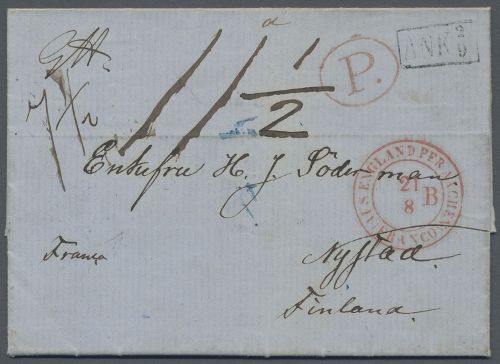 a
P.
ANK 2/9
7 1/2
11 1/2
Enkefru H. J. Söderman
AUS ENGLAND PER AACHEN
FRANCO
21
8
B
Franco
Nystad
Finland.